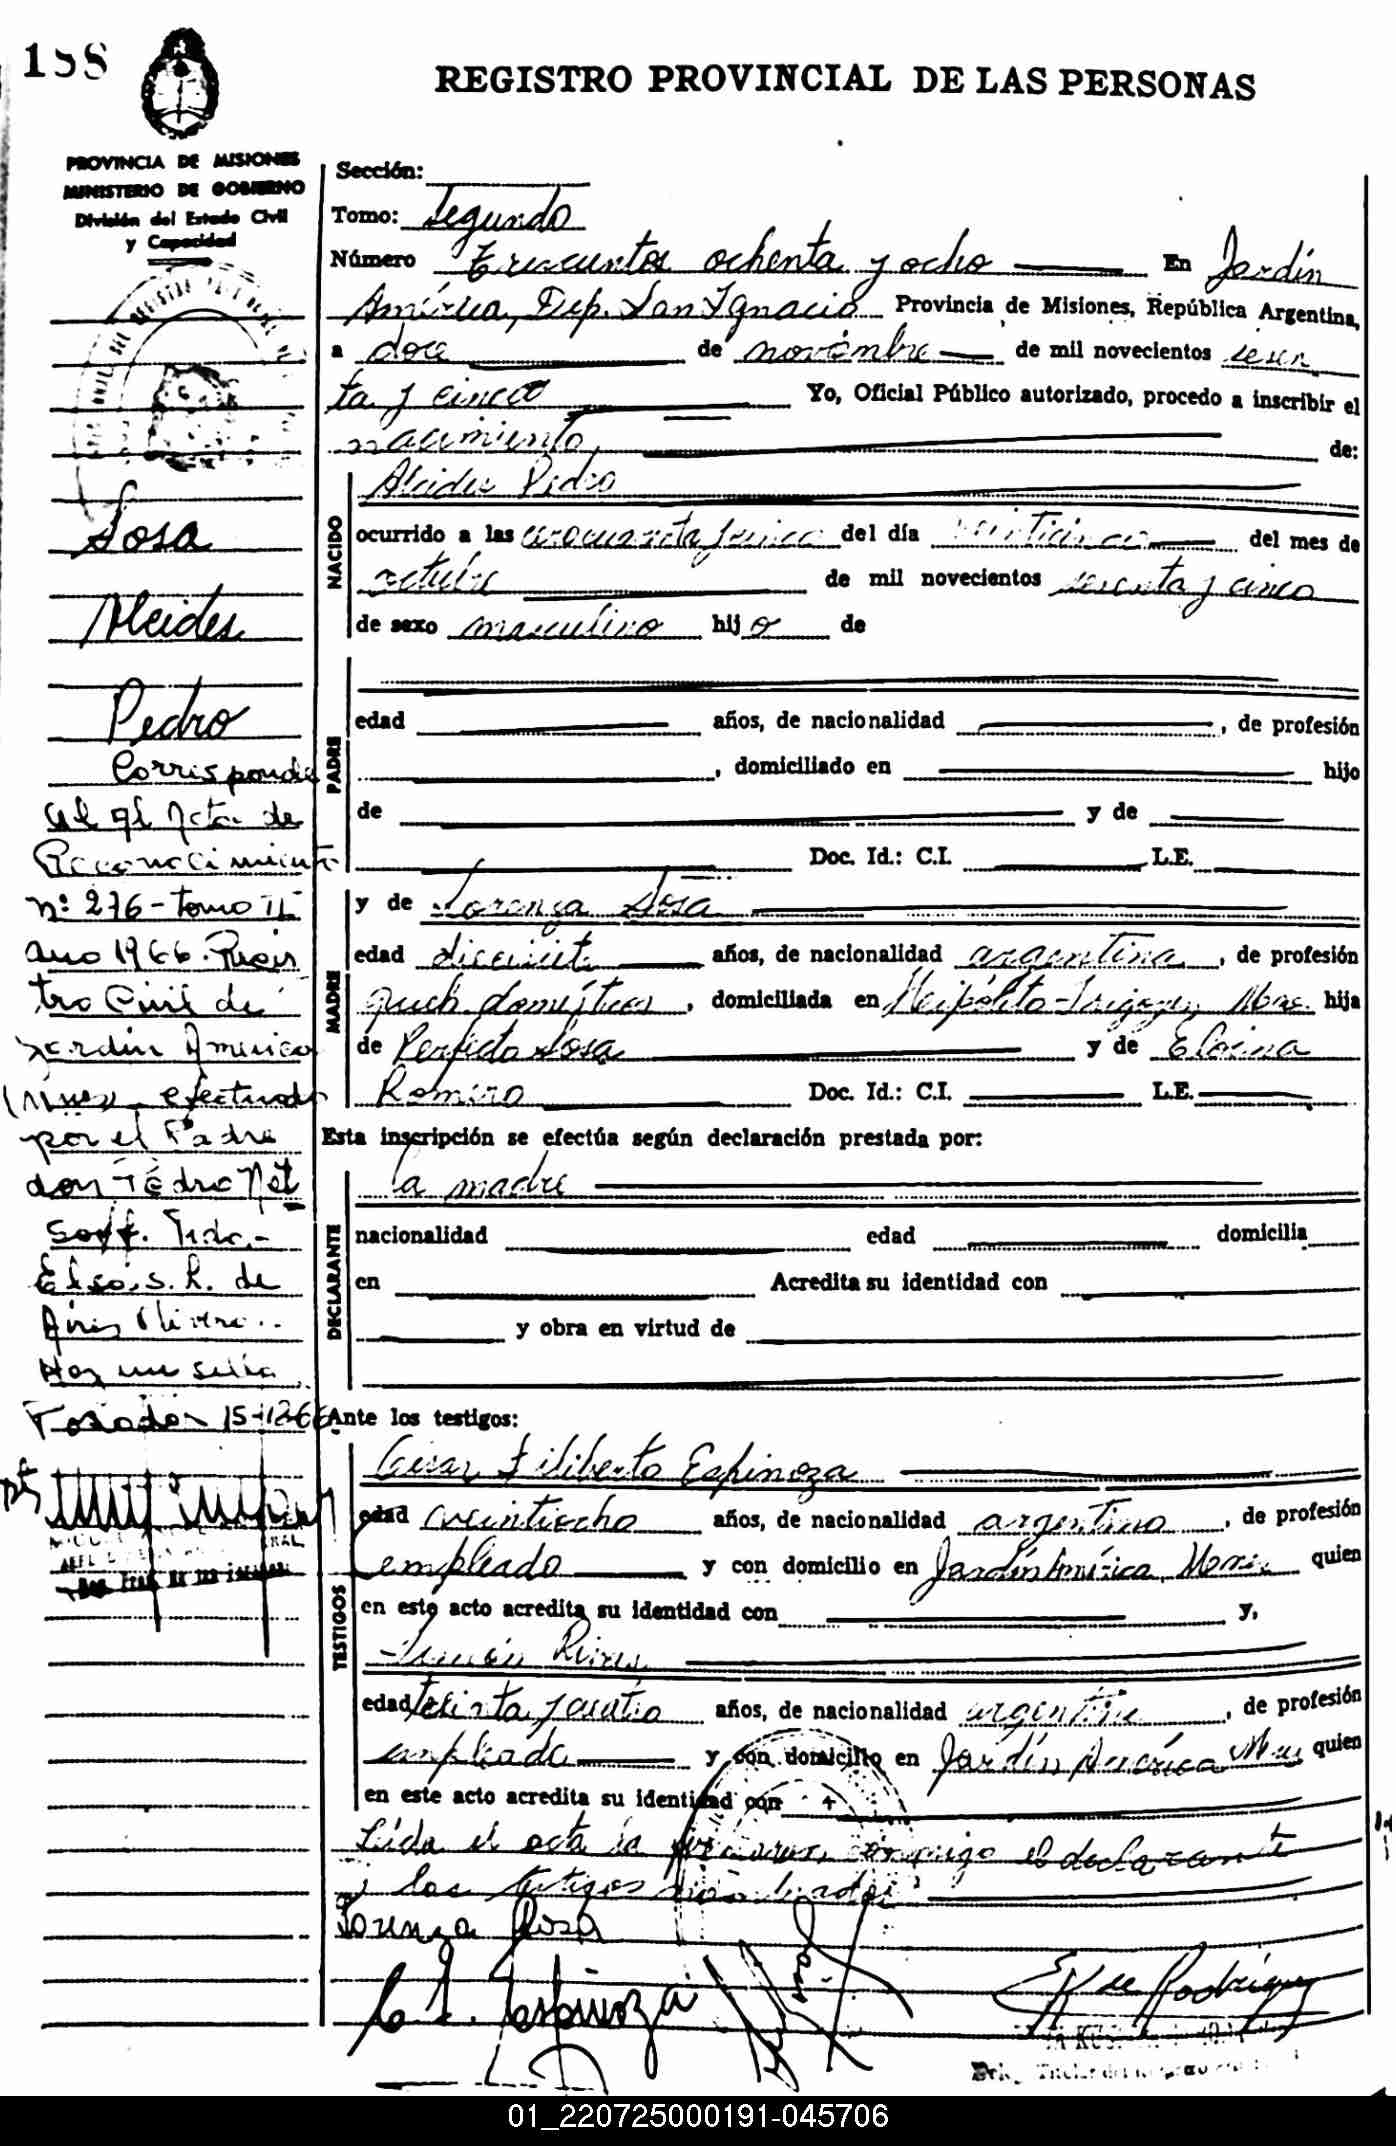 188
REGISTRO PROVINCIAL DE LAS PERSONAS
PROVINCIA DE MISIONES
MINISTERIO DE GOBIERNO
División del Estado Civil
y Capacidad
Sección:
Tomo: Segundo
Número Trescientos ochenta y ocho En Jardín
América, Dep. San Ignacio Provincia de Misiones, República Argentina,
a doce de noviembre de mil novecientos sesen
ta y cinco Yo, Oficial Público autorizado, procedo a inscribir el
nacimiento de:
Alcides Pedro
NACIDO
ocurrido a las cero cuarenta y cinco del día veinticinco del mes de
octubre de mil novecientos sesenta y cinco
de sexo masculino hijo de
PADRE
edad años, de nacionalidad , de profesión
, domiciliado en hijo
de y de
Doc. Id.: C.I. L.E.
MADRE
y de Lorenza Sosa
edad diecisiete años, de nacionalidad argentina, de profesión
queh. domésticos, domiciliada en Hipólito Irigoyen, Mnes. hija
de Perfecto Sosa y de
Romero Doc. Id.: C.I. L.E.
Esta inscripción se efectúa según declaración prestada por:
DECLARANTE
la madre
nacionalidad edad domicilia
en Acredita su identidad con
y obra en virtud de
Ante los testigos:
TESTIGOS
César Filiberto Espinoza
edad veintiocho años, de nacionalidad argentino, de profesión
empleado y con domicilio en Jardín América, Mnes. quien
en este acto acredita su identidad con y,
edad treinta y cuatro años, de nacionalidad argentina, de profesión
empleada y con domicilio en Jardín América Mnes quien
en este acto acredita su identidad con
Leída el acta la firmaron conmigo el declarante
y los testigos nombrados
Lorenza Sosa
C. F. Espinoza
de Rodríguez
Sosa
Alcides
Pedro
Corresponde
al Acta de
Reconocimiento
nº 276 - Tomo II
Año 1966. Regis
tro Civil de
Jardín América
(Mnes) efectuado
por el Padre
don Pedro
de
Hay un sello
Posadas 15-12-66
01_220725000191-045706